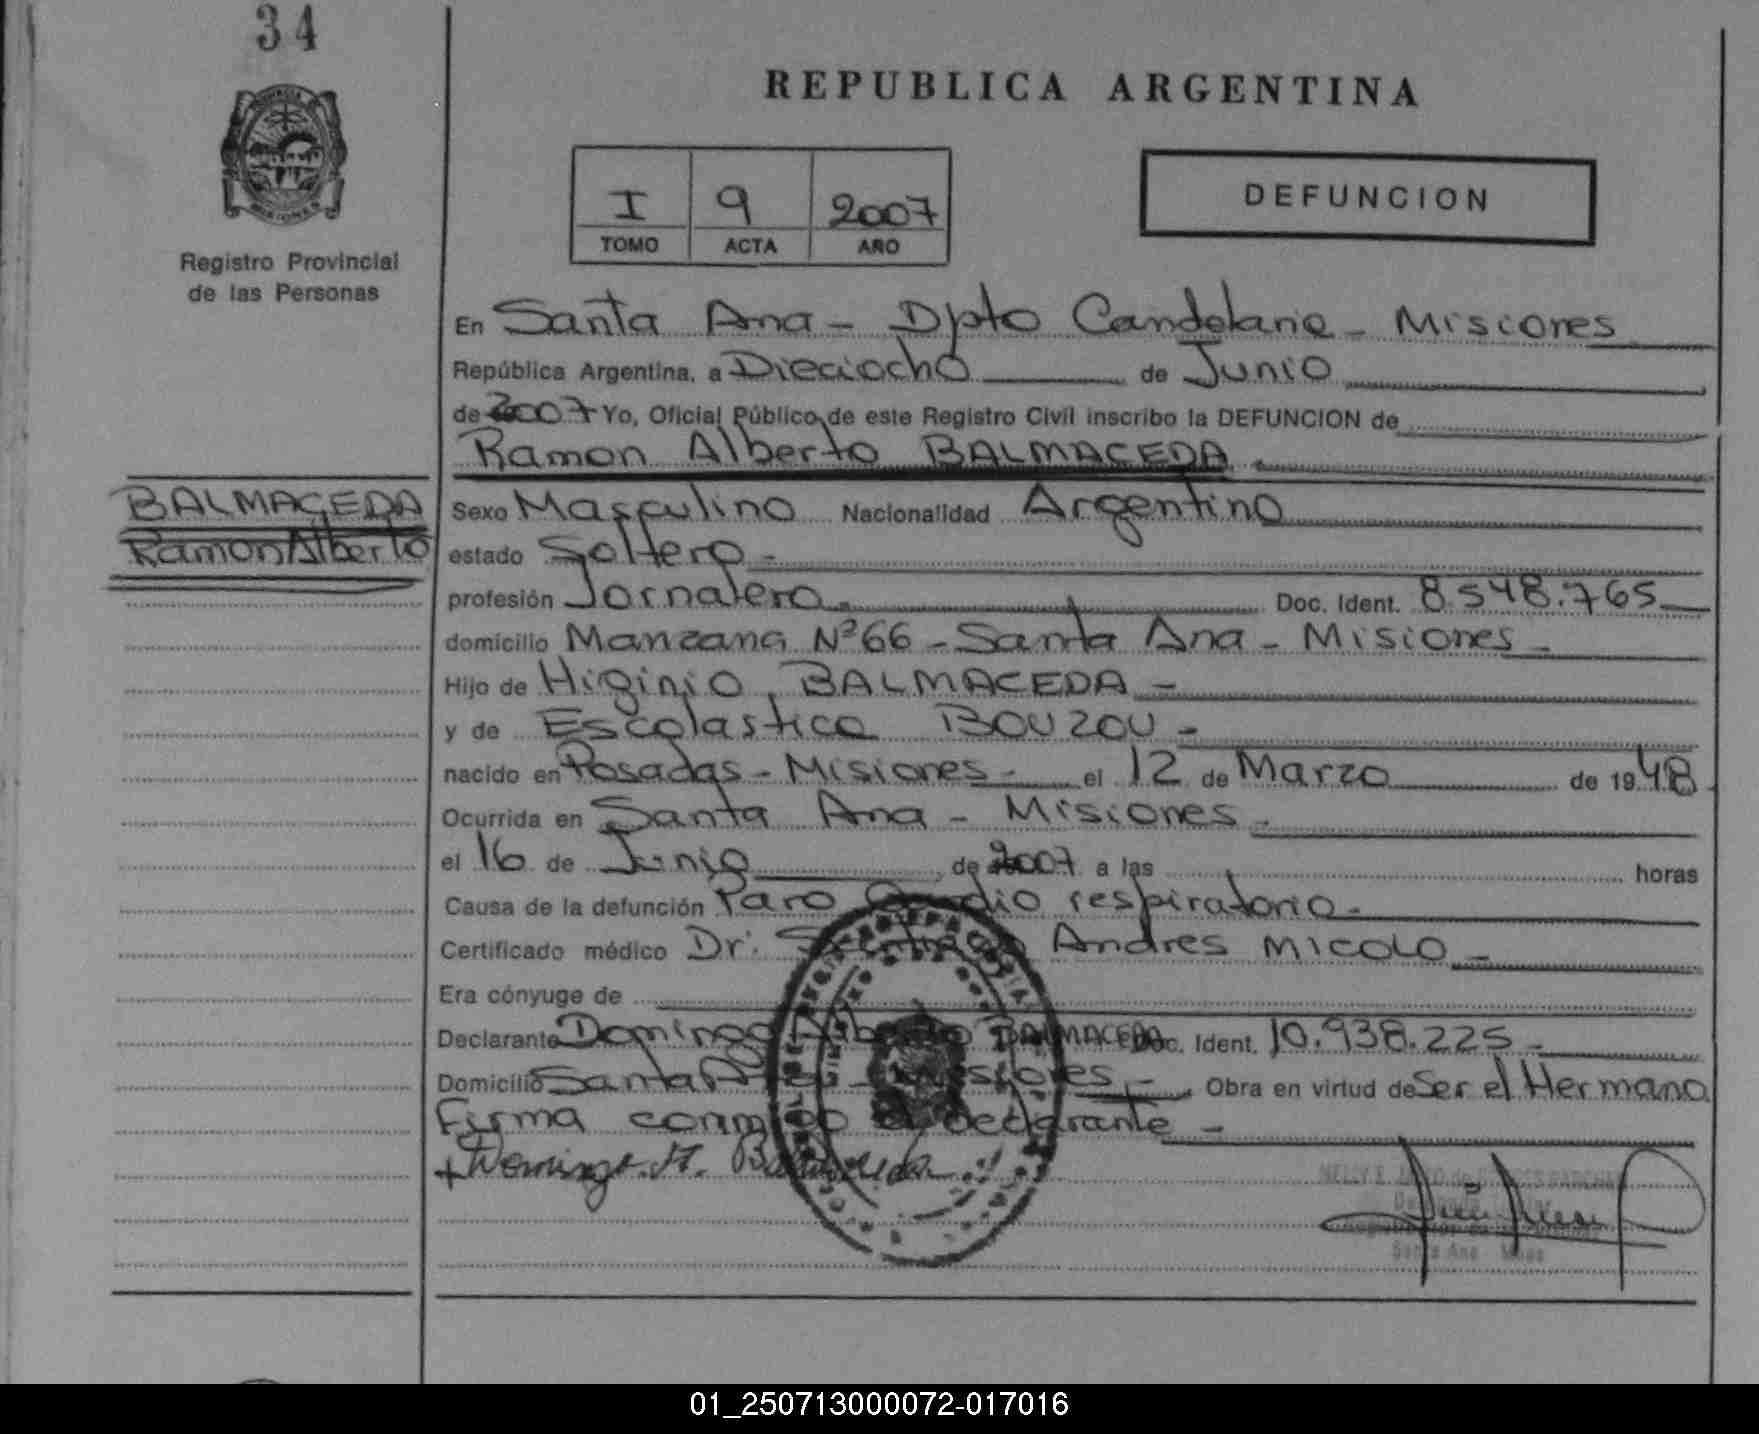 34
REPUBLICA ARGENTINA
I 9 2007
TOMO ACTA AÑO
DEFUNCION
Registro Provincial
de las Personas
En Santa Ana - Dpto Candelaria - Misiones
República Argentina, a Dieciocho de Junio
de 2007 Yo, Oficial Público de este Registro Civil inscribo la DEFUNCION de
Ramon Alberto BALMACEDA
BALMACEDA
Ramon Alberto
Sexo Masculino Nacionalidad Argentino
estado Soltero -
profesión Jornalero. Doc. Ident. 8.548.765
domicilio Manzana Nº 66 - Santa Ana - Misiones -
Hijo de Higinio BALMACEDA -
y de Escolastica BOUZOU -
nacido en Posadas - Misiones - el 12 de Marzo de 1948
Ocurrida en Santa Ana - Misiones -
el 16 de Junio de 2007 a las horas
Causa de la defunción Paro Cardio respiratorio -
Certificado médico Dr: Santiago Andres MICOLO -
Era cónyuge de
Declarante Domingo Alberto BALMACEDA Doc. Ident. 10.938.225 -
Domicilio Santa Ana - Misiones - Obra en virtud de Ser el Hermano
Firma conmigo el declarante -
+ Domingo A. Balmaceda
Santa Ana Mnes
01_250713000072-017016